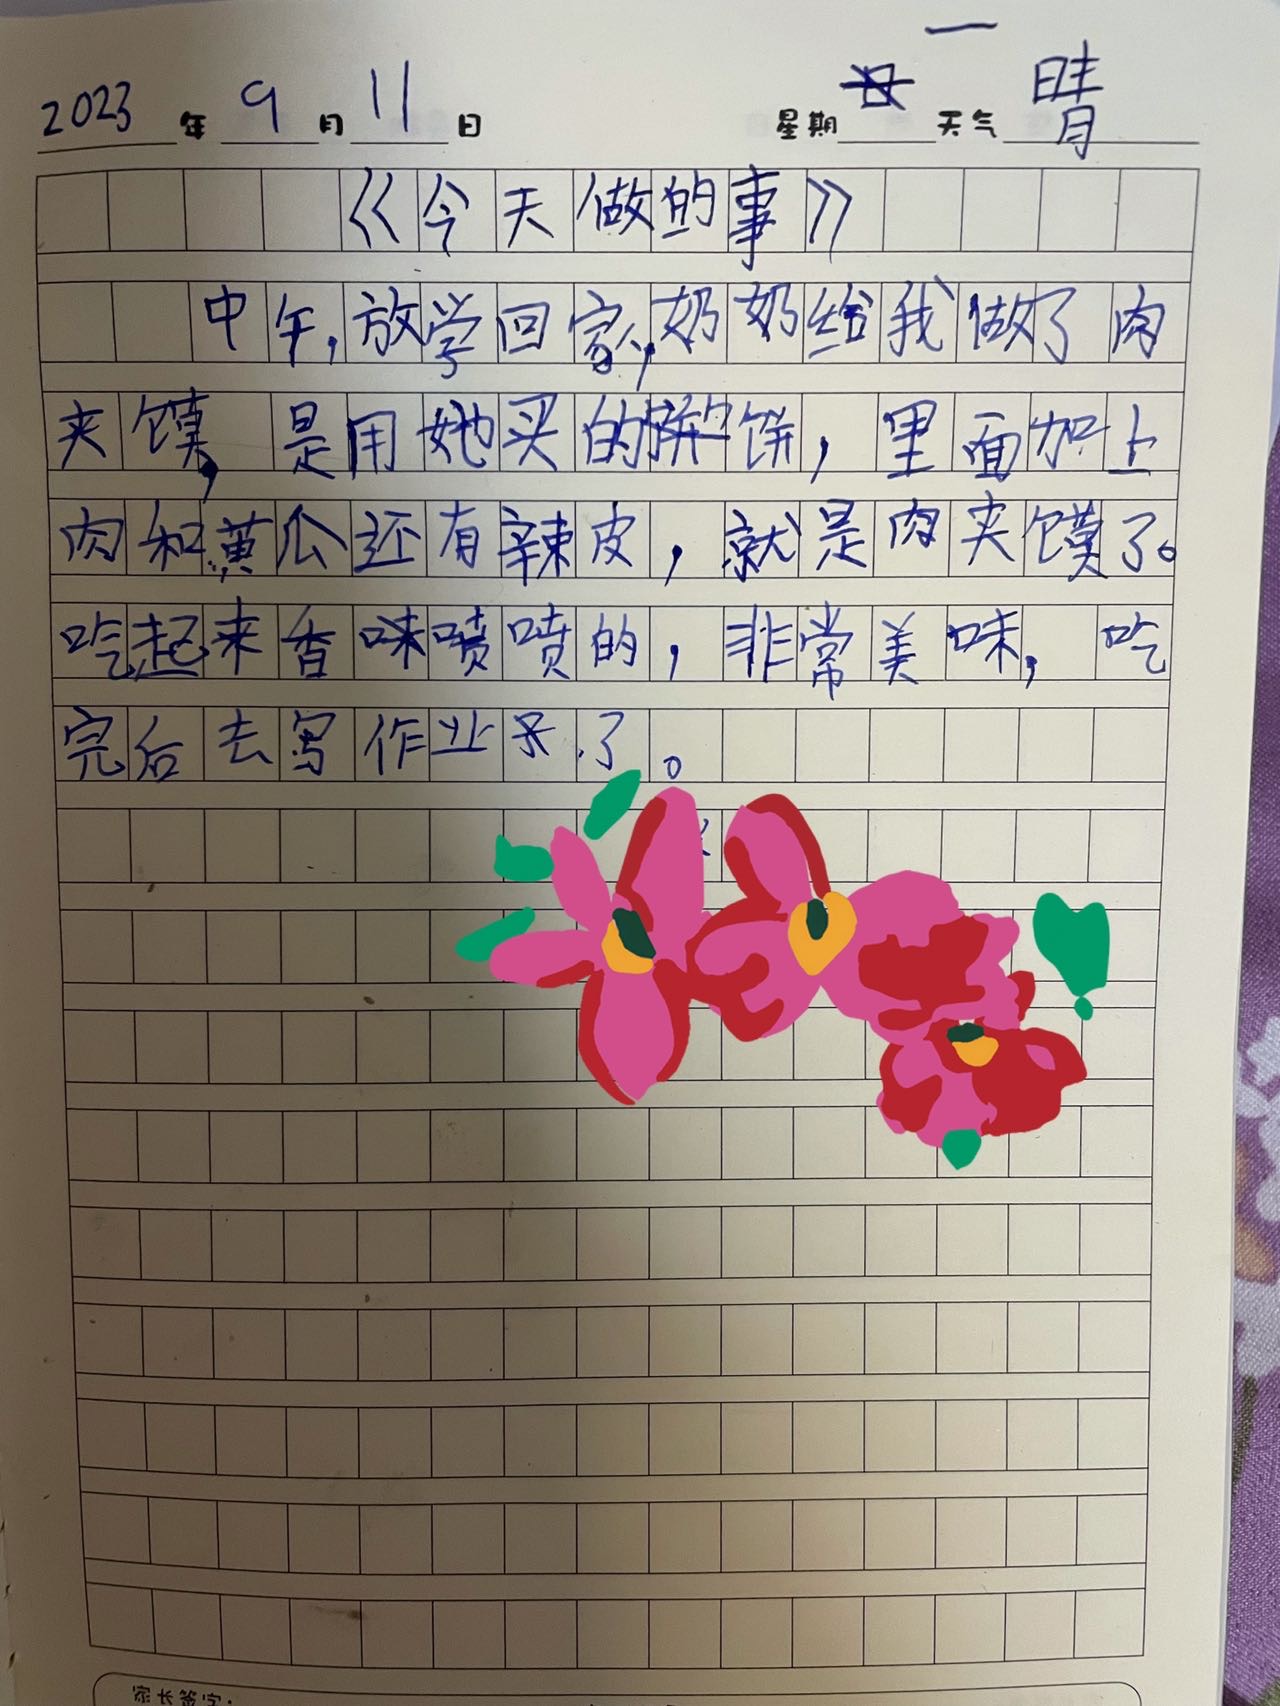 2023年9月11日 星期一 天气晴
《今天做的事》
中午,放学回家,奶奶给我做了肉
夹馍,是用她买的饼,里面加上
肉和黄瓜还有辣皮,就是肉夹馍了。
吃起来香味喷喷的,非常美味,吃
完后去写作业了。
家长签字: